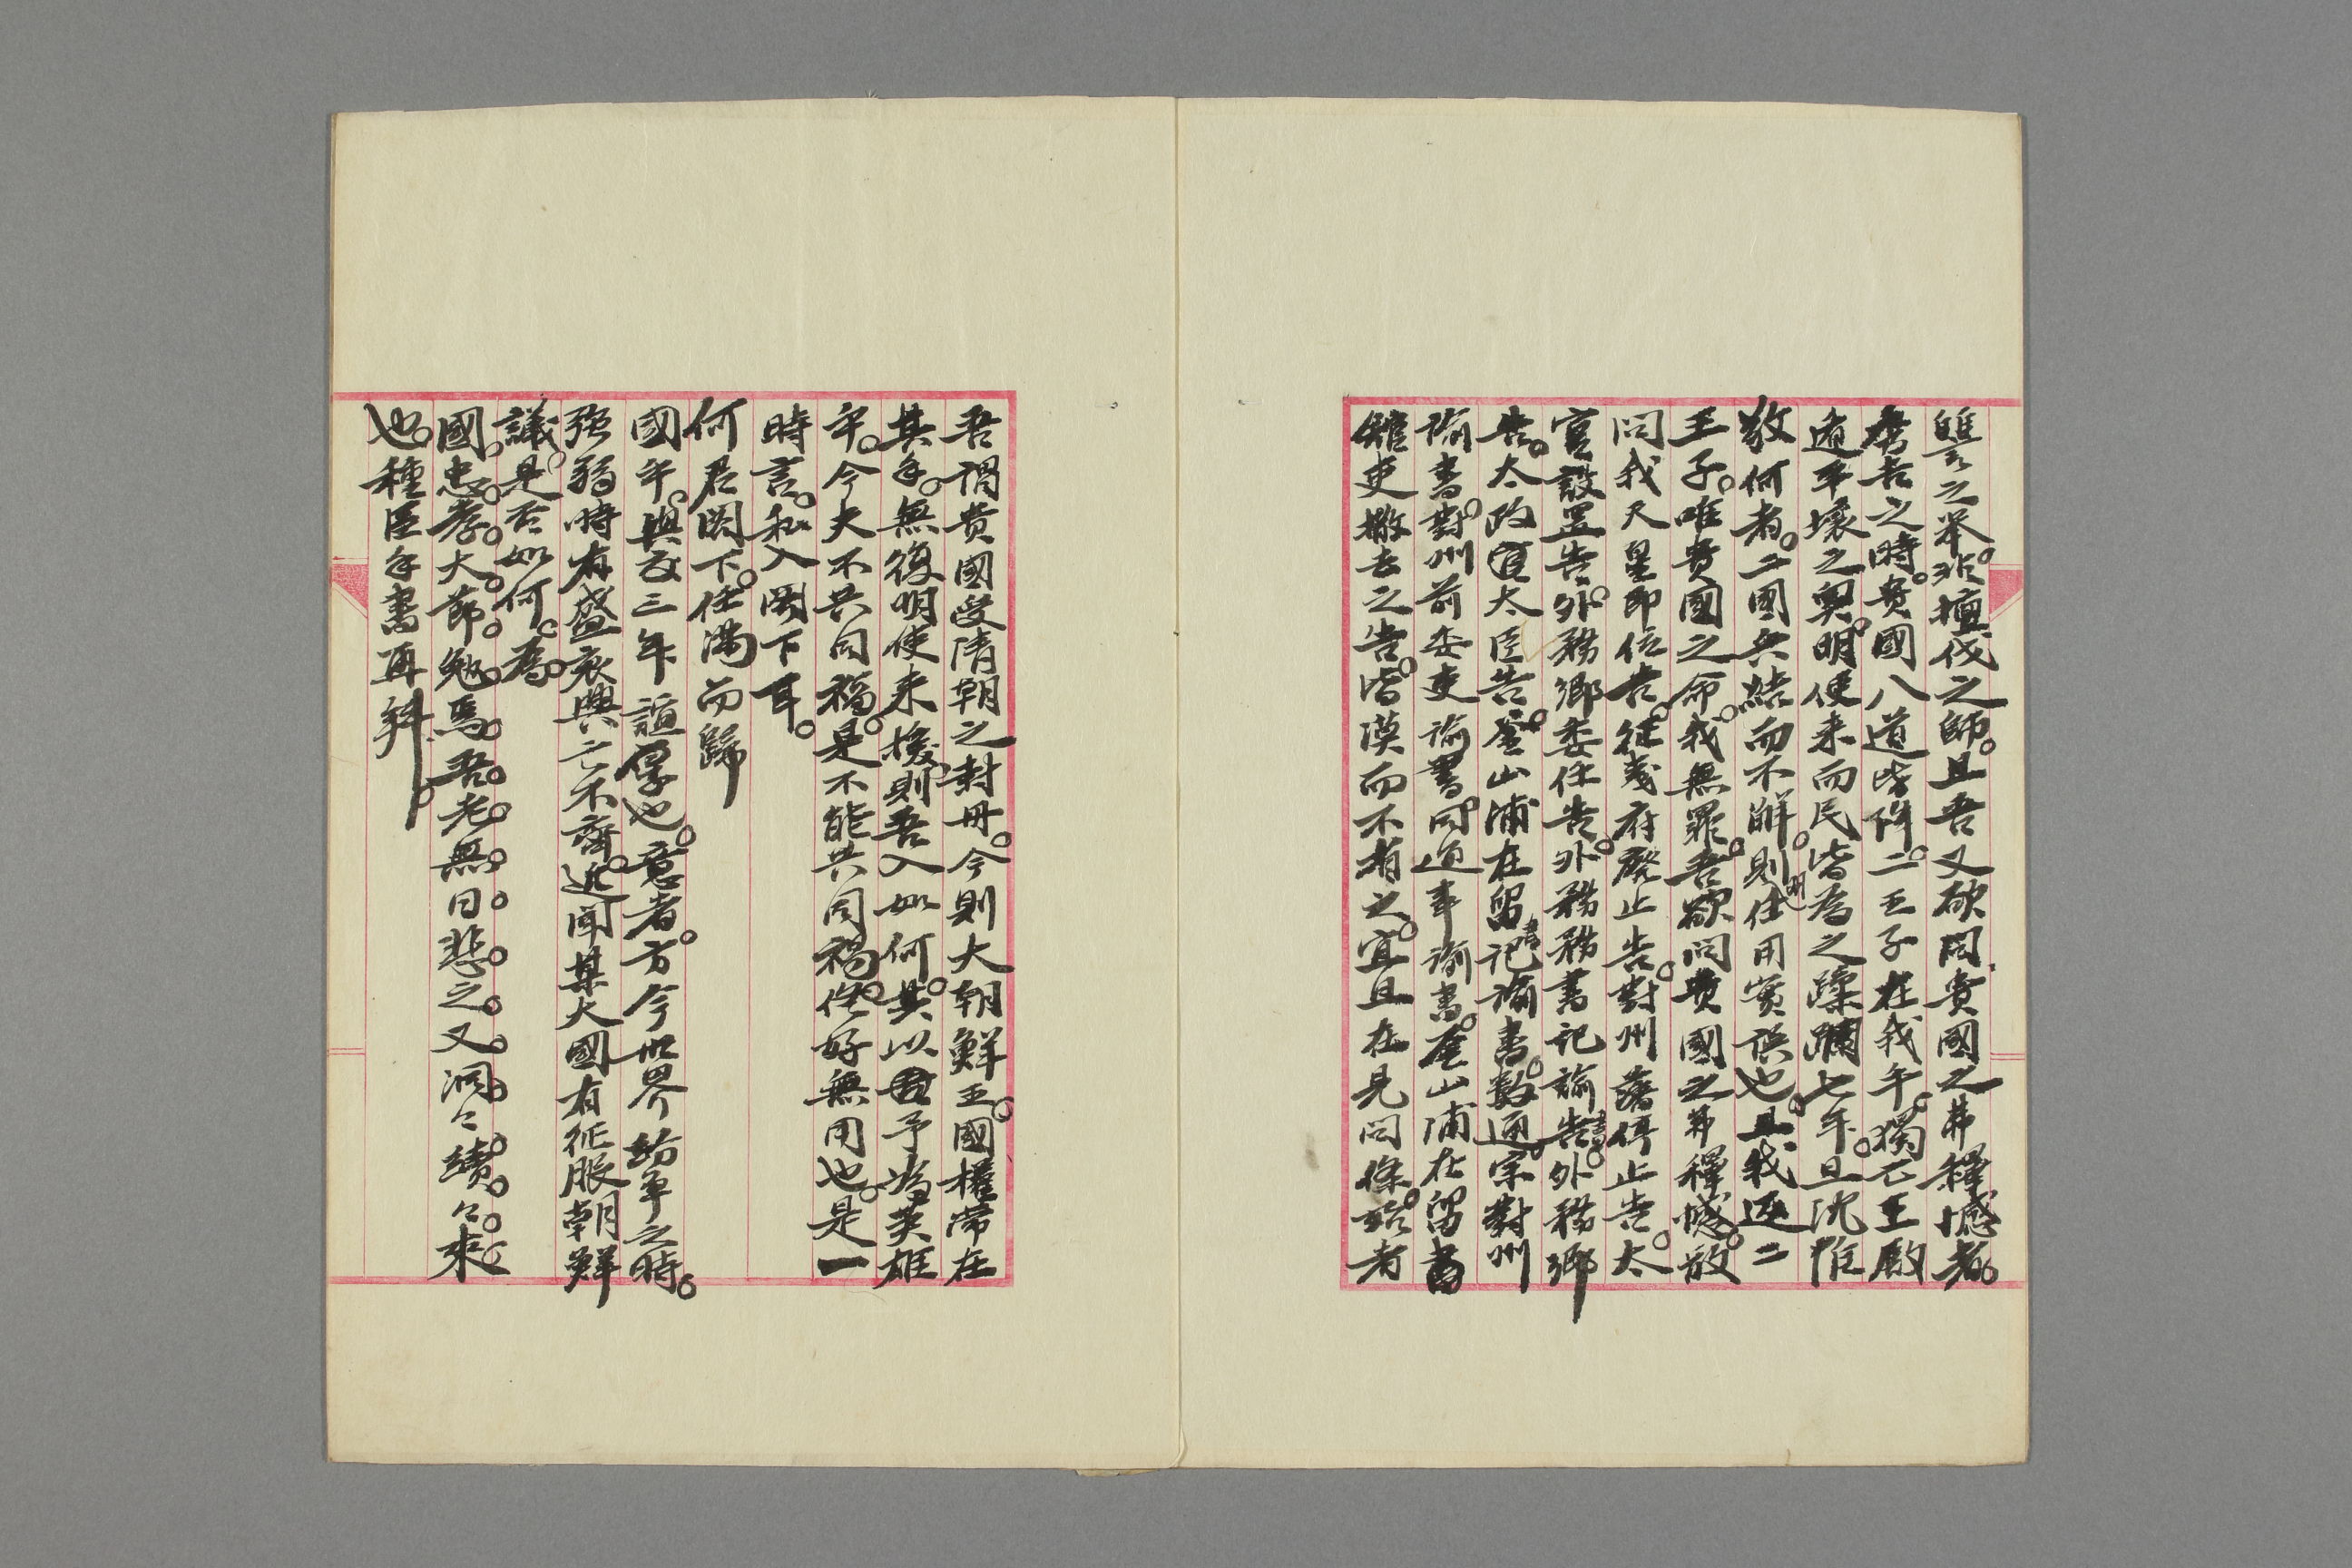 讐之举。非擅伐之師。且吾又欲問貴國之弗釋憾者。
為吉之時。貴國八道皆降。二王子在我乎。獨亡王殿
道平壤之奧。明使来而民皆為之蹂躪七年。且沈惟
敬何者。二國兵結而不解。則明使用賞誤也。且我返二
王子。唯貴國之命。我無罪。吾欲問貴國之弗釋憾。敢
問我天皇即位告。征夷府廢止告。對州藩停止告。太
官設置告。外務卿委任告。外務書記諭告書。外務卿
告。太政官大臣告。釜山浦在留書記諭書。數通。宗對州
諭書。對州前委吏諭書。同通事諭書。釜山浦在留書
雖吏撤去之告。皆漠而不省之。宜且在見問條。殆者
吾謂貴國受清朝之封冊。今則大朝鮮王。國權常在
其手。無復明使来援。則吾入如何。其以君予為英雄
乎。今夫不共同福。是不能共同禍。條好無用也。是一
時言。私入閣下耳。
何君閣下。任満而歸
國乎。與交三年誼厚也。意者。方今世界紛争之時。
强弱時有盛衰興亡不齊。近聞某大國有征服朝鮮
議。是否如何。為
國。忠孝大節。勉焉。吾老無日。悲之。又洞々續々來
也。種臣手書再拜。